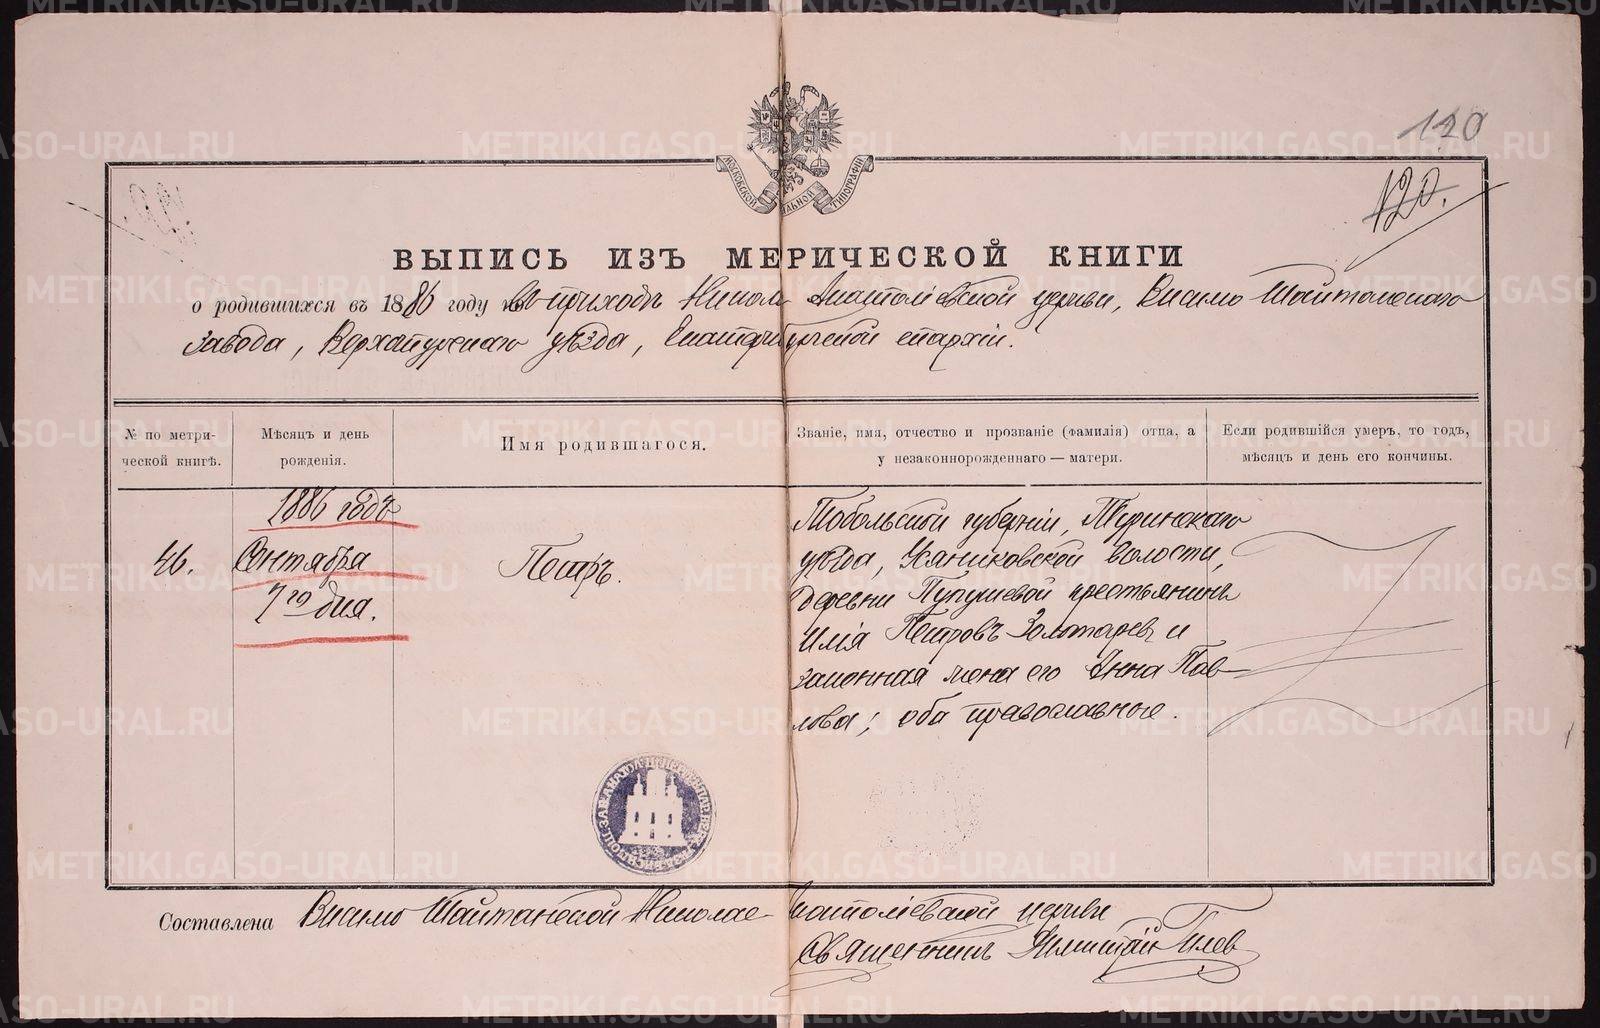 120
120.
МОСКОВСКОЙ
ТИПОГРАФІИ
ВЫПИСЬ ИЗЪ МЕРИЧЕСКОЙ КНИГИ
о родившихся въ 1886 году по приходъ Никол Анатоліевской церкви, Висимо Шайтанскаго
завода, Верхотурскаго уѣзда, Екатеринбургской епархіи.
№ по метри-
ческой книгѣ.
Мѣсяцъ и день
рожденія.
Имя родившагося.
Званіе, имя, отчество и прозваніе (фамилія) отца, а
у незаконнорожденнаго — матери.
Если родившійся умеръ, то годъ,
мѣсяцъ и день его кончины.
46.
1886 годъ
Сентября
7го дня.
Петръ.
Тобольской губерніи, Туринскаго
уѣзда, волости,
деревни крестьянинъ
Илія Петровъ Золотаревъ и
законная жена его Анна Пав-
лова; оба православные.
Составлена Висимо Шайтанской Николае-Анатоліевской церкви
Священникъ
METRIKI.GASO-URAL.RU